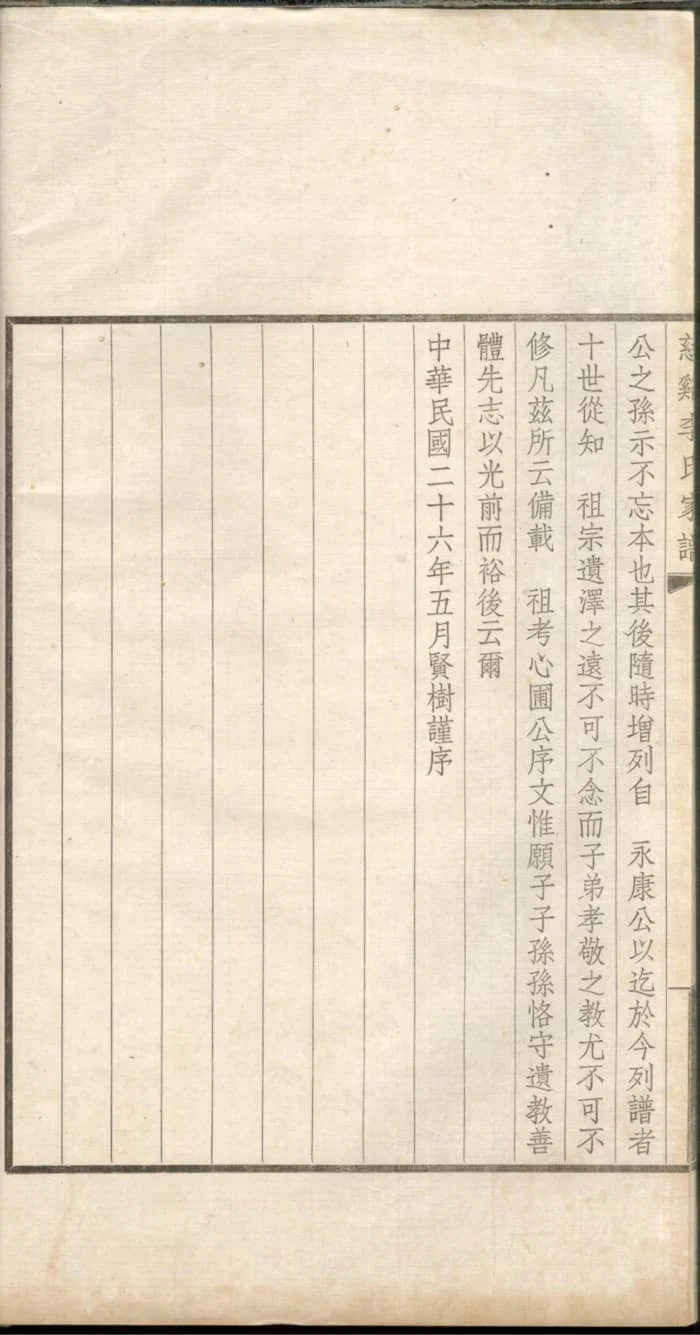 慈谿李氏家譜
公之孫示不忘本也其後隨時增列自　永康公以迄於今列譜者
十世從知　祖宗遺澤之遠不可不念而子弟孝敬之教尤不可不
修凡茲所云備載　祖考心圃公序文惟願子子孫孫恪守遺教善
體先志以光前而裕後云爾
中華民國二十六年五月賢樹謹序